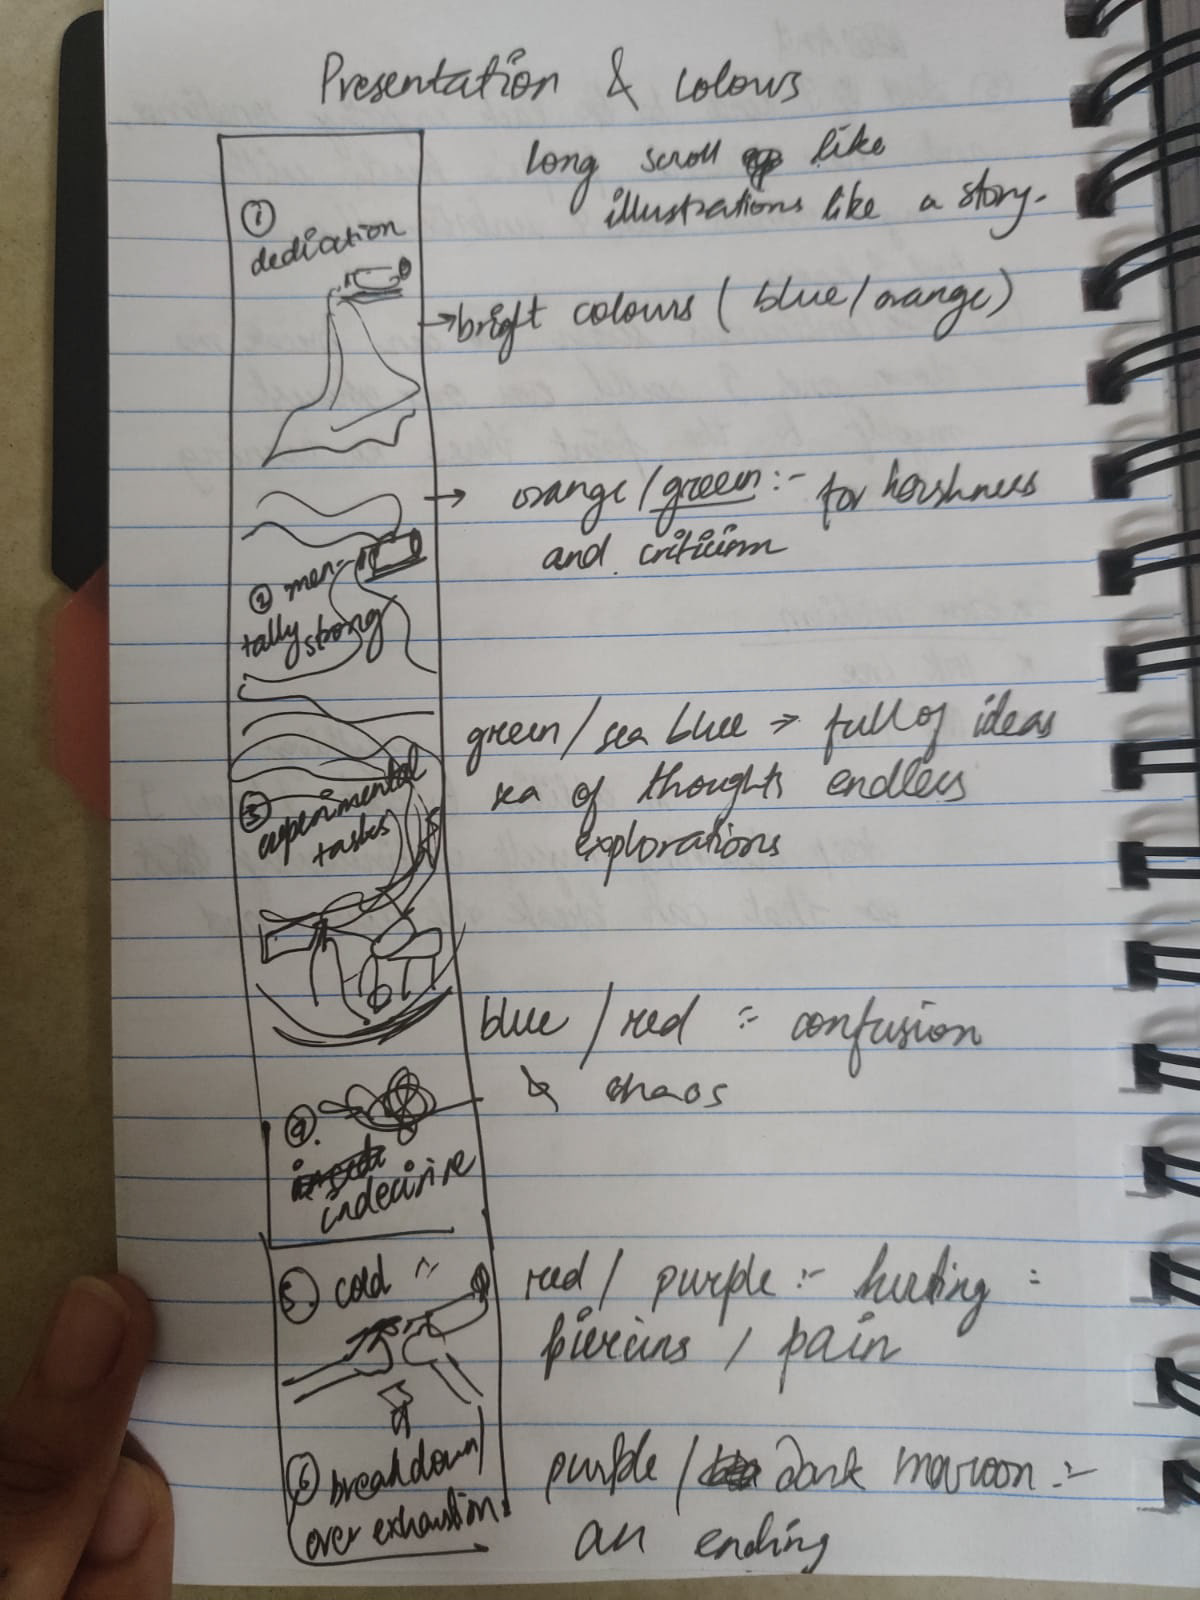 Presentation & colours
long scroll like
illustrations like a story.
①
dedication
→ bright colours ( blue/orange)
→ orange / green :- for harshness
and criticism
② men-
tally strong
green / sea blue → full of ideas
sea of thoughts endless
explorations
③
experimental
tasks
blue / red :- confusion
& chaos
④.
indecisive
⑤. cold
red / purple :- hurting :
piercing / pain
⑥ breakdown/
over exhaustion.
purple / dark maroon :-
an ending